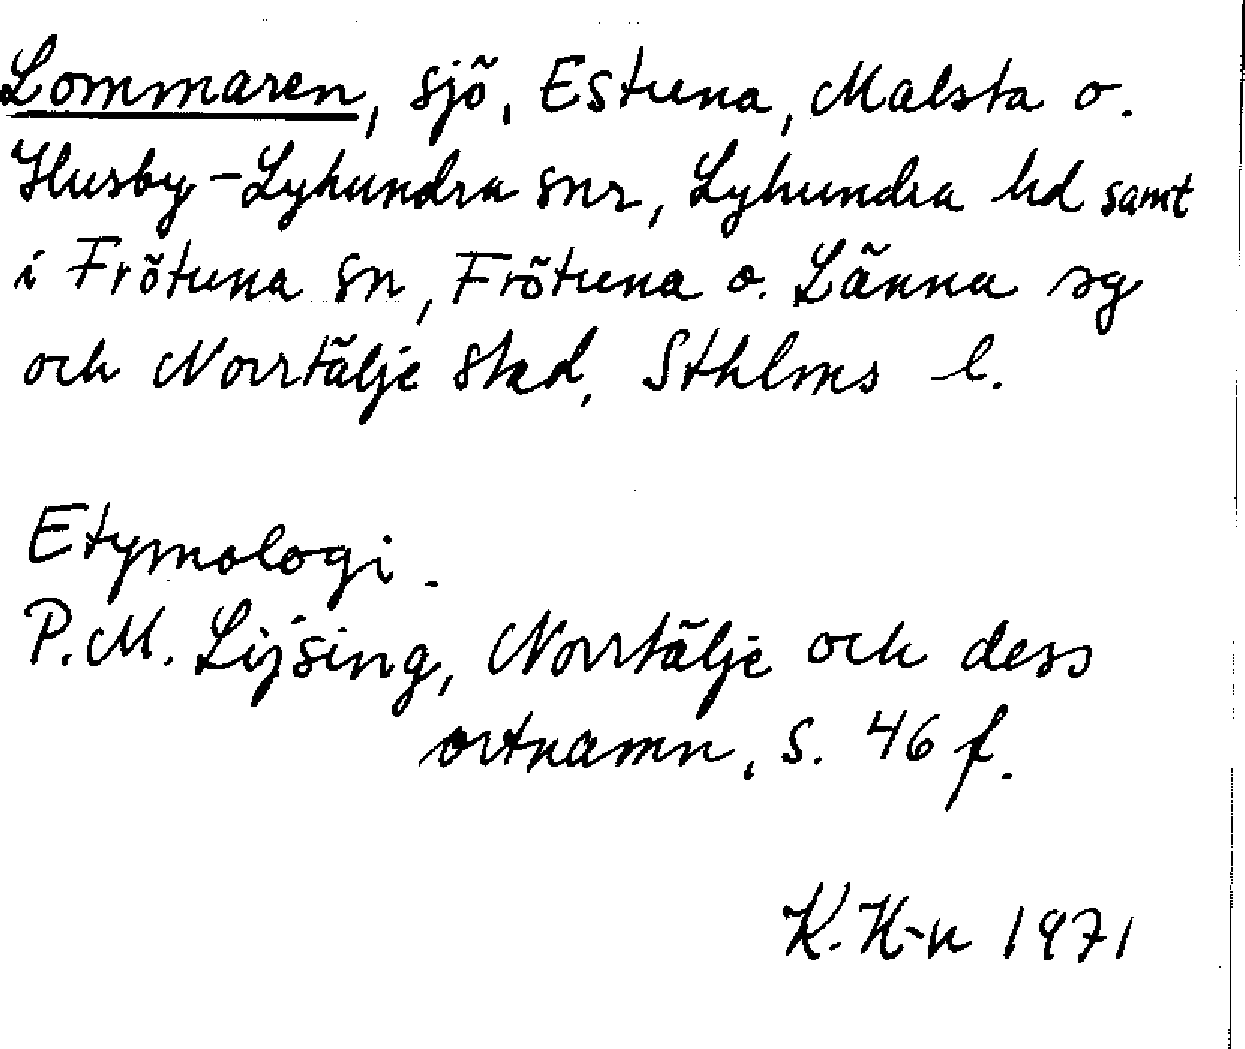 Lommaren, sjö, Estuna, Malsta o.
Husby-Lyhundra snr, Lyhundra hd samt
i Frötuna sn, Frötuna o. Länna sg
och Norrtälje stad, Sthlms l.
Etymologi.
P.M. Lijsing, Norrtälje och dess
ortnamn, s. 46 f.
K.H-n 1971